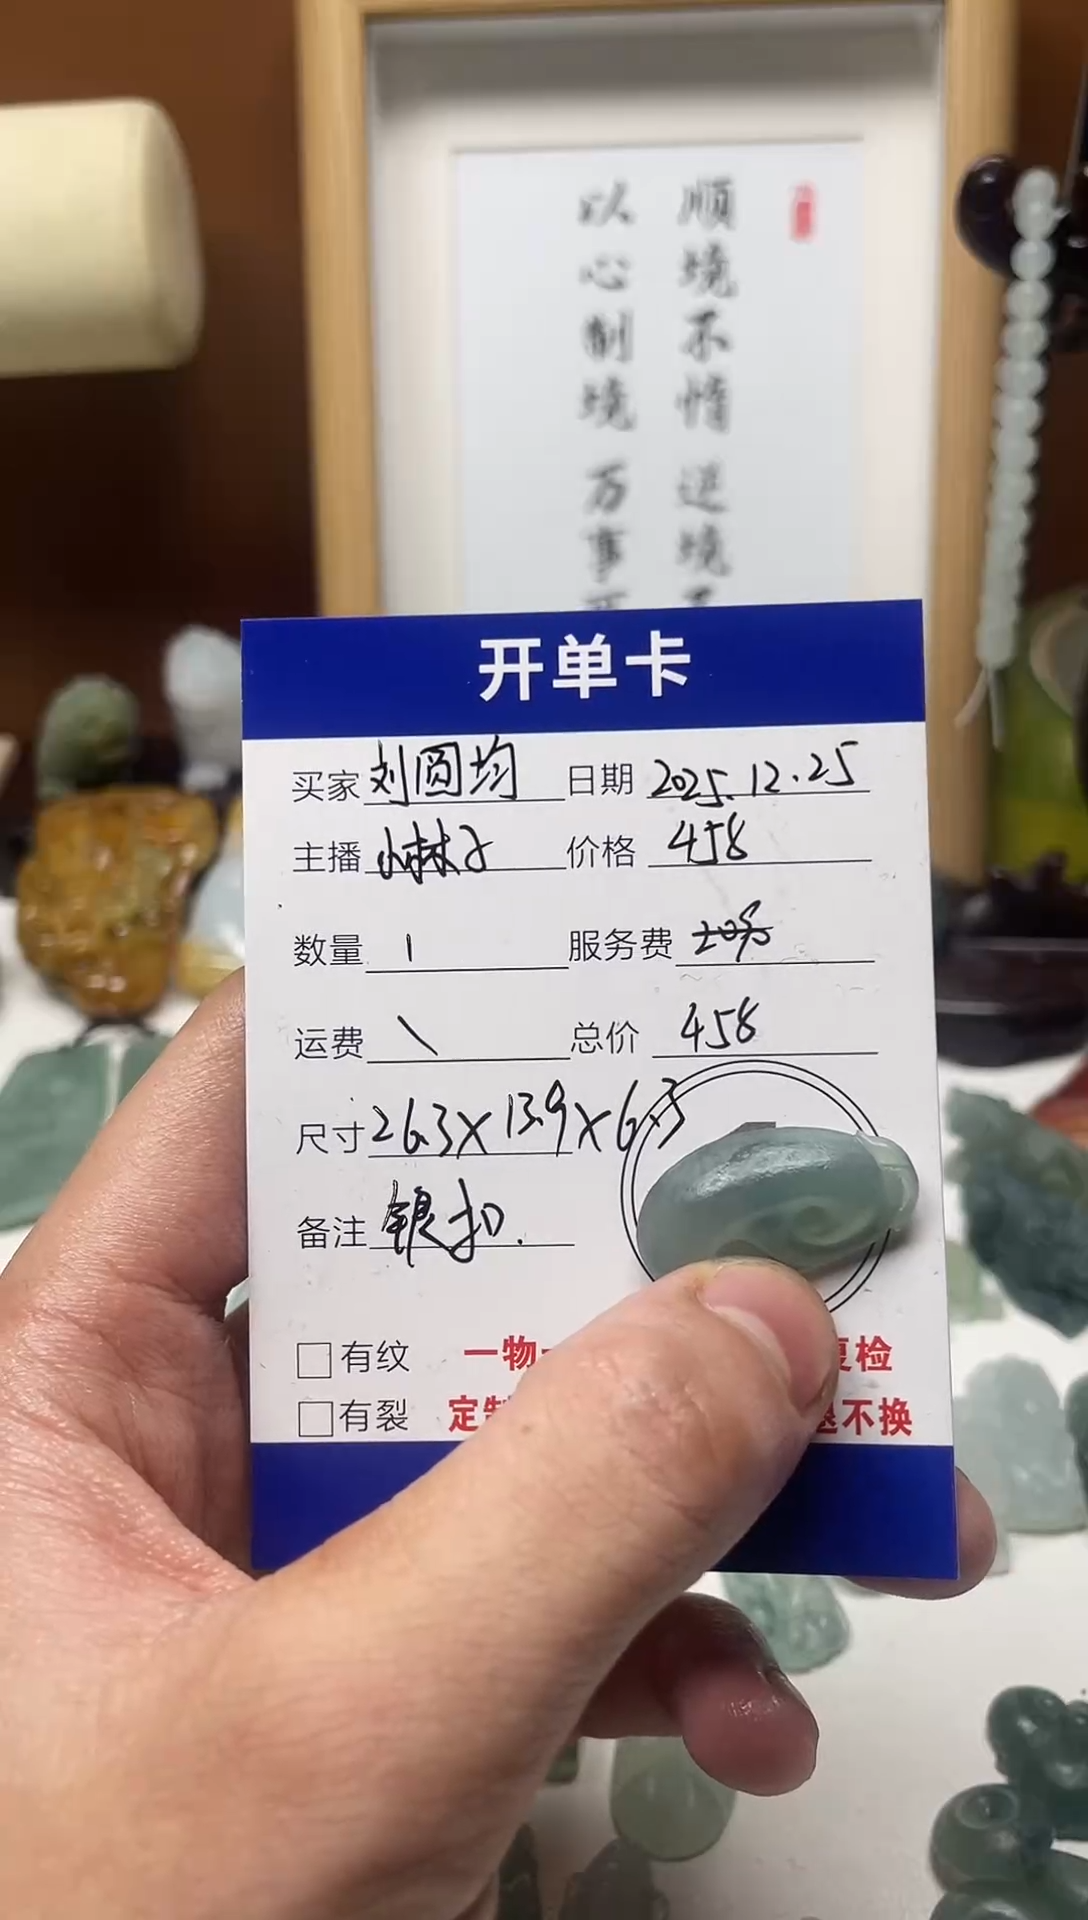 顺境不惰 逆境不
以心制境 万事可
开单卡
买家 刘圆均 日期 2025.12.25
主播 小林子 价格 458
数量 1 服务费 20%
运费 \ 总价 458
尺寸 26.3×13.9×6.3
备注 银扣.
有纹 一物 复检
有裂 定制 退不换